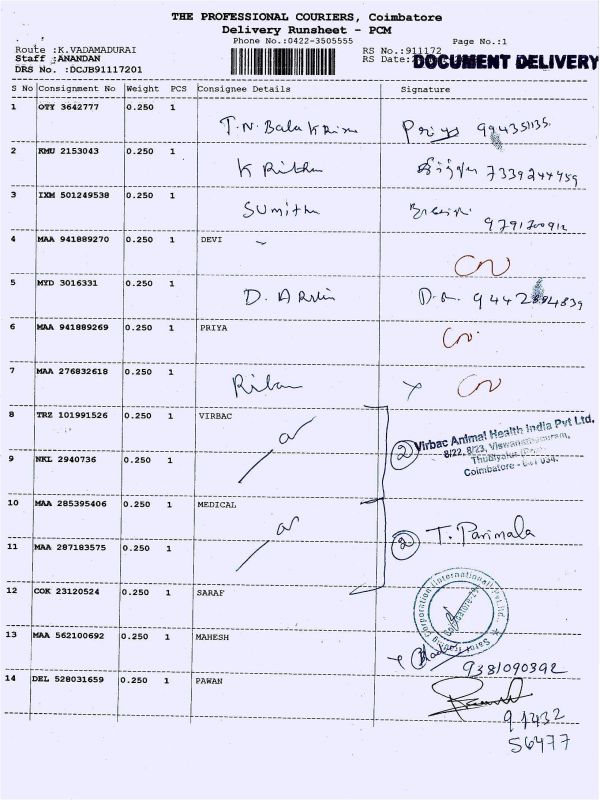 THE PROFESSIONAL COURIERS, Coimbatore
Delivery Runsheet - PCM
Phone No.:0422-3505555 Page No.:1
Route :K.VADAMADURAI RS No.:911172
Staff :ANANDAN RS Date: DOCUMENT DELIVERY
DRS No. :DCJB91117201
S No Consignment No Weight PCS Consignee Details Signature
1 OTY 3642777 0.250 1
T.N. Bala Priya
2 KMU 2153043 0.250 1
K 7339244959
3 IXM 501249538 0.250 1
Sumithra
9791200912
4 MAA 941889270 0.250 1 DEVI
5 MYD 3016331 0.250 1
D.
6 MAA 941889269 0.250 1 PRIYA
7 MAA 276832618 0.250 1
8 TRZ 101991526 0.250 1 VIRBAC
2 Virbac Animal Health India Pvt Ltd.
8/22, 8/23,
9 NKL 2940736 0.250 1
Coimbatore - 641 034.
10 MAA 285395406 0.250 1 MEDICAL
2 T. Parimala
11 MAA 287183575 0.250 1
12 COK 23120524 0.250 1 SARAF
13 MAA 562100692 0.250 1 MAHESH
9381090392
14 DEL 528031659 0.250 1 PAWAN
91432
56477